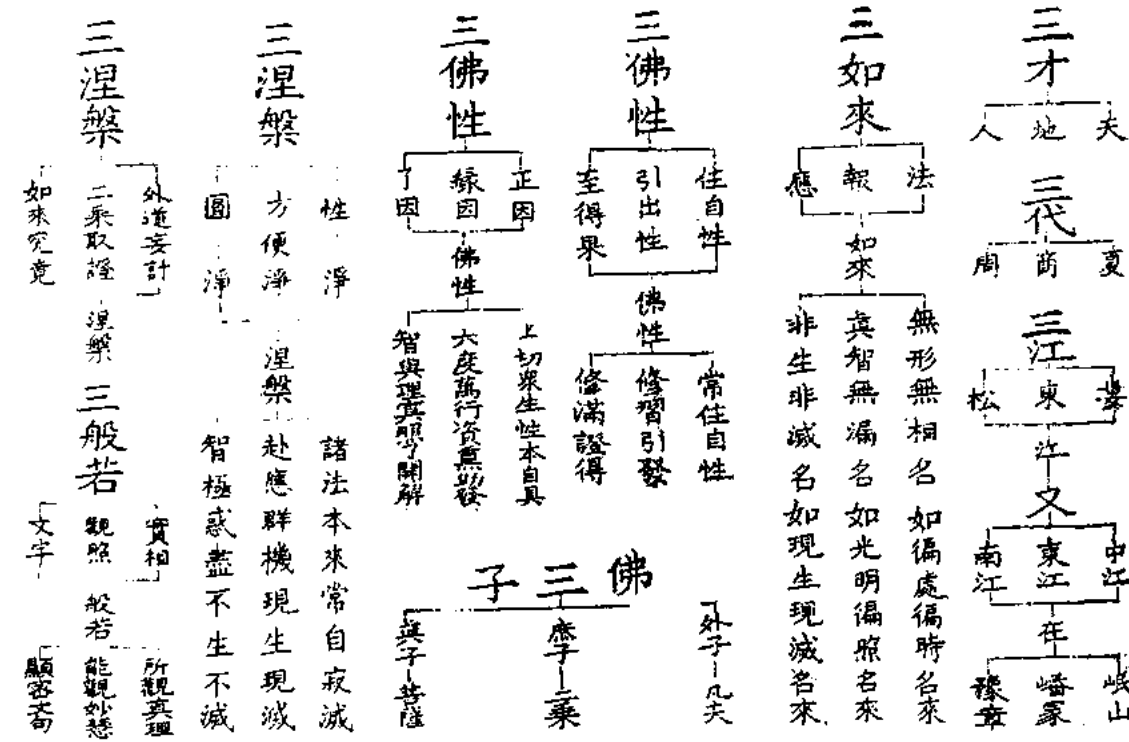 三才
天
地
人
三代
夏
商
周
三江
婁
東
松
江
又
中江
東江
南江
在
岷山
嶓冢
豫章
三如來
法
報
應
如來
無形無相名如徧處徧時名來
真智無漏名如光明徧照名來
非生非滅名如現生現滅名來
三佛性
住自性
引出性
至得果
佛性
常住自性
修習引發
修滿證得
三佛性
正因
緣因
了因
佛性
一切眾生性本自具
六度萬行資熏助發
智與理冥照了開解
佛三子
外子－凡夫
庶子－二乘
真子－菩薩
三涅槃
性淨
方便淨
圓淨
涅槃
諸法本來常自寂滅
赴應群機現生現滅
智極惑盡不生不滅
三涅槃
外道妄計
二乘取證
如來究竟
涅槃
三般若
實相
觀照
文字
般若
所觀真理
能觀妙慧
顯密文句